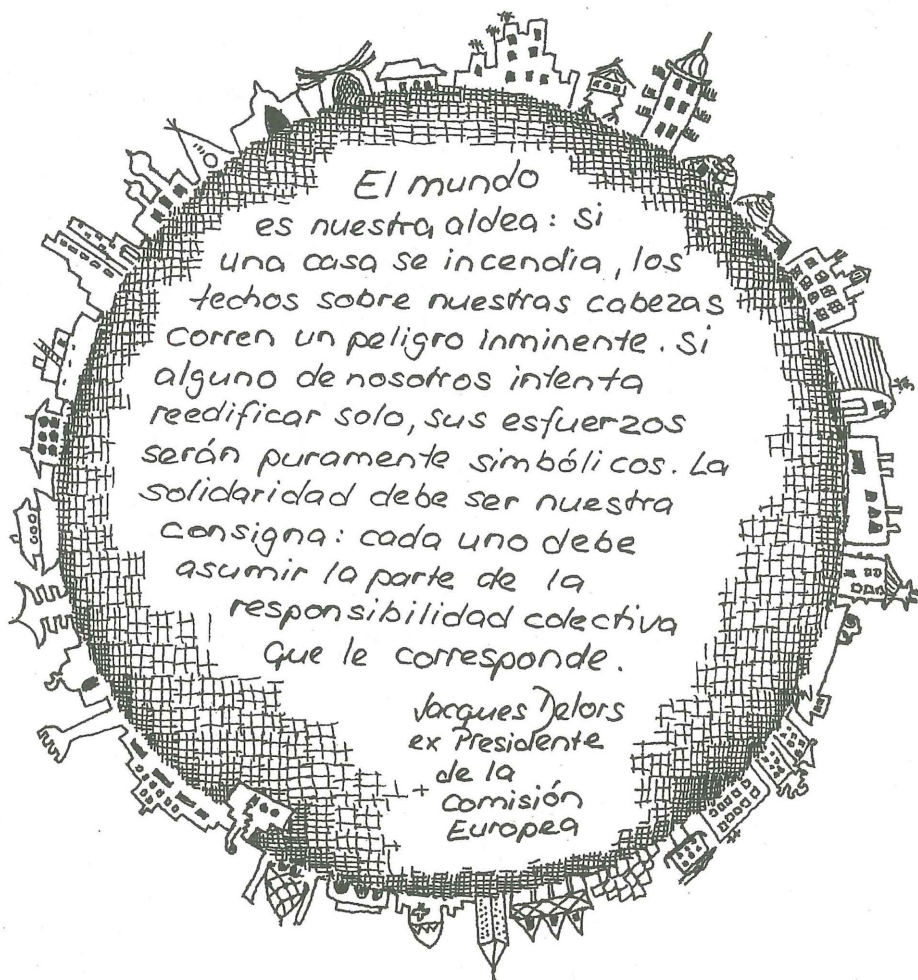 El mundo
es nuestra aldea: si
una casa se incendia, los
techos sobre nuestras cabezas
corren un peligro inminente. Si
alguno de nosotros intenta
reedificar solo, sus esfuerzos
serán puramente simbólicos. La
solidaridad debe ser nuestra
consigna: cada uno debe
asumir la parte de la
responsibilidad colectiva
que le corresponde.
Jacques Delors
ex Presidente
de la
Comisión
Europea